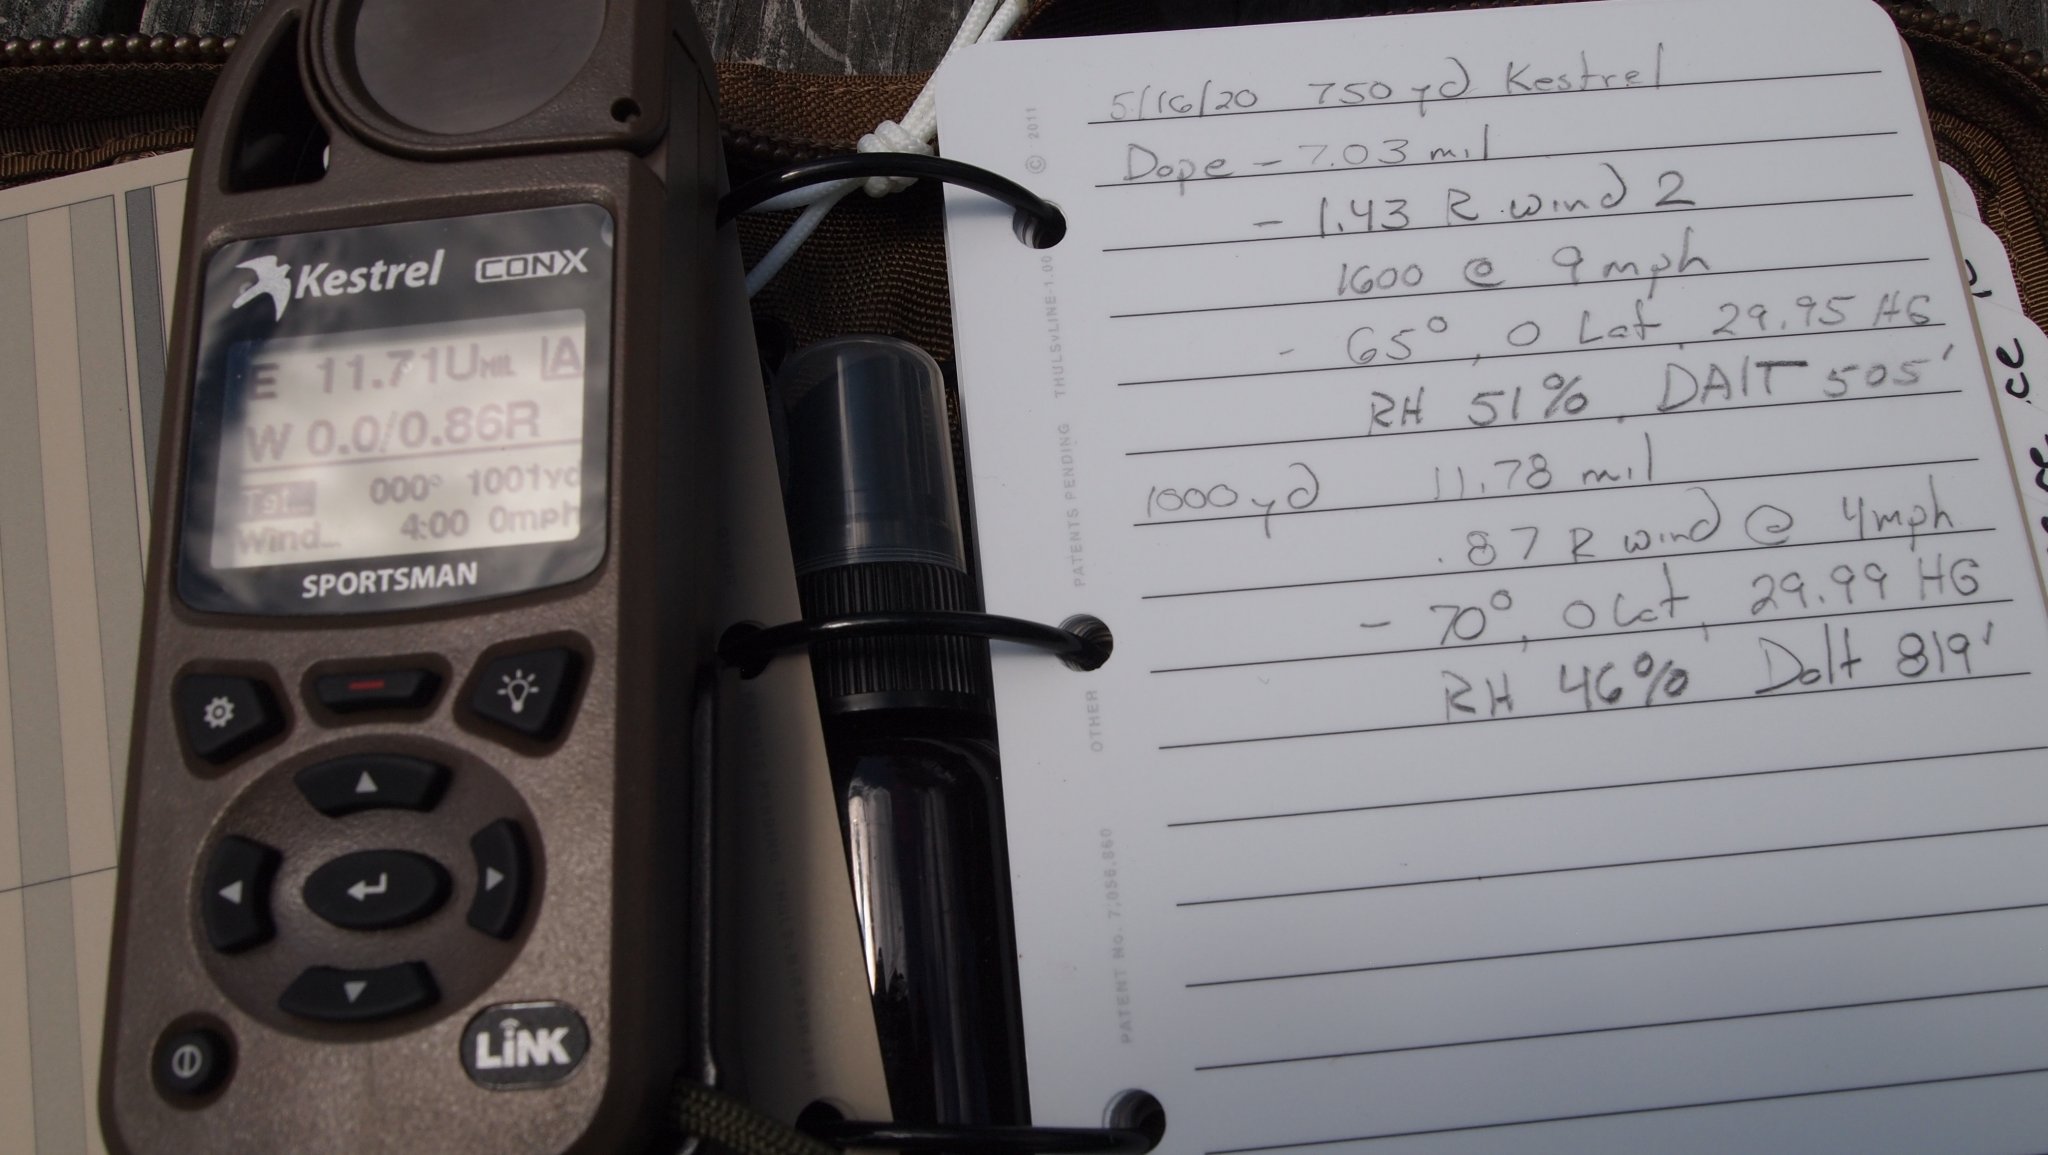 Kestrel CONX
E 11.71UMIL
W 0.0/0.86R
000° 1001yd
Wind 4:00 0mph
SPORTSMAN
LiNK
5/16/20 750 yd Kestrel
Dope - 7.03 mil
- 1.43 R wind 2
1600 @ 9 mph
- 65°, 0 Lat, 29.95 HG
RH 51%, DAlT 505'
1000 yd 11.78 mil
.87 R wind @ 4mph
- 70°, 0 Lat, 29.99 HG
RH 46%, Dalt 819'
© 2011
PATENTS PENDING
OTHER
PATENT No. 7,056,860
.cc